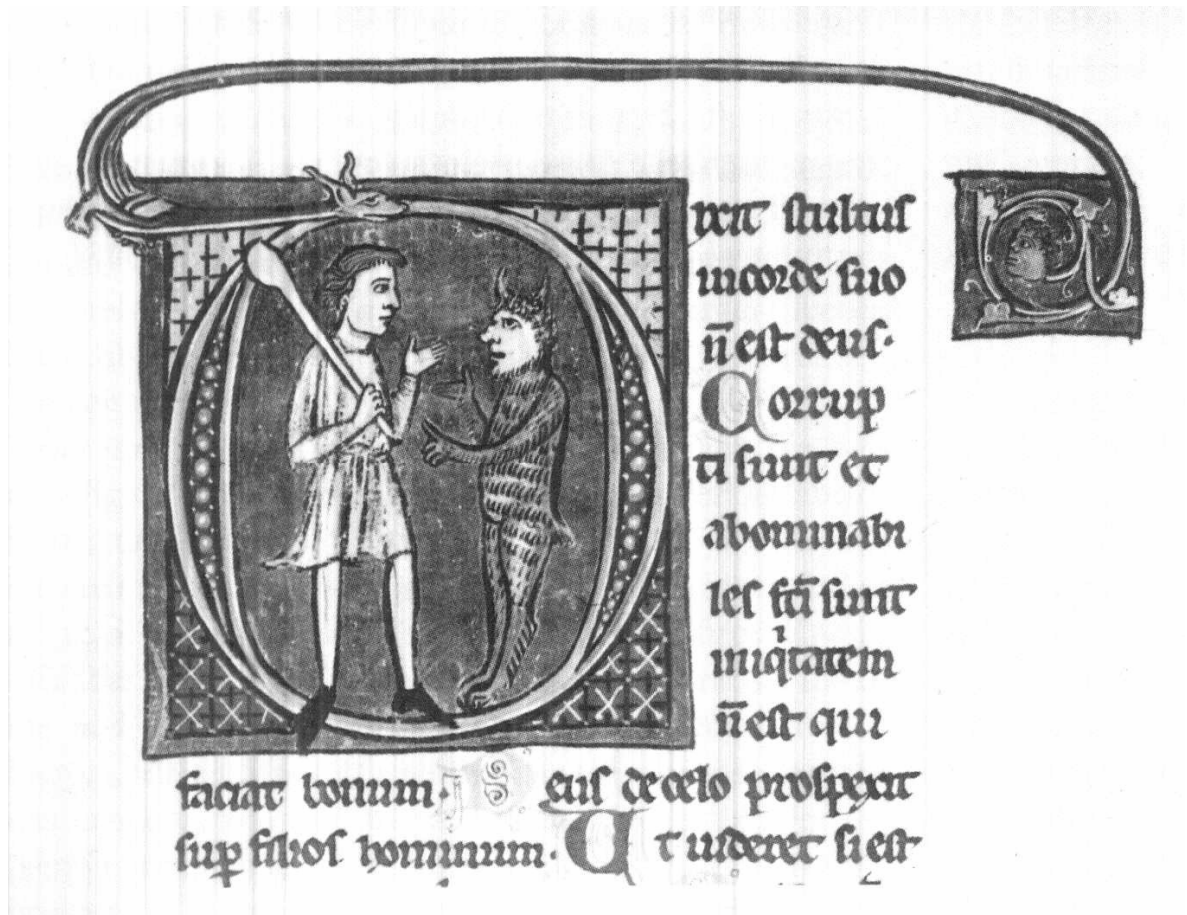 Dixit stultus
in corde suo
n̄ est deus.
Corrup
ti sunt et
abominabi
les fc̄i sunt
iniqⁱtatem
n̄ est qui
faciat bonum. Deus de celo prospexit
sup̱ filios hominum. Ut uideret si est